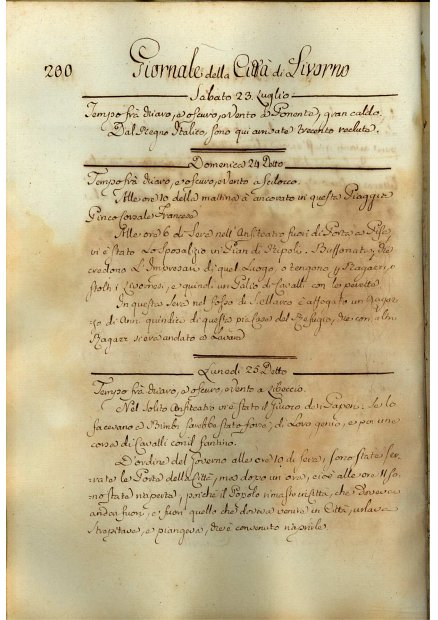 200 Giornale della Città di Livorno
Sabato 23. Luglio
Tempo frà chiaro, e oscuro, e Vento a Ponente, gran caldo.
Dal Regno Italico, sono qui arrivate trecento reclute.
Domenica 24 Detto
Tempo frà chiaro, e oscuro, e Vento a Scilocco.
Alle ore 10 della mattina è ancorato in questa Piaggia
Corsale Francese.
Alle ore 6 di Sera nell' Anfiteatro fuori di Porta a Pisa,
vi è stato Lo Sposalizio in Pian di Ripoli. Buffonata, che
credono L'Impresari di quel Luogo, o tengono p Ragazzi, o
stolti i Livornesi, e quindi un Palio di Cavalli con le
In questa Sera nel fosso di S. Marco è affogato un Ragaz-
zo di Anni quindici di questa pia Casa del Refugio, che con altri
Ragazzi si era andato a Lavare.
Lunedì 25 Detto
Tempo frà chiaro, e oscuro, e Vento a Libeccio.
Nel solito Anfiteatro vi è stato il Giuoco de i Se lo
facevano a Bimbi sarebbe stato forse, di Loro genio, e per una
corsa di Cavalli con il fantino.
D'ordine del Governo alle ore 10 di sera, sono state ser-
rate le Porte della Città, ma dopo un ora, cioè alle ore 11 so-
no state riaperte, perche il Popolo rimasto in Città, che doveva
andar fuori, e fuori quello che doveva venire in Città, urlava
strepitava, e piangeva, che è convenuto riaprile.